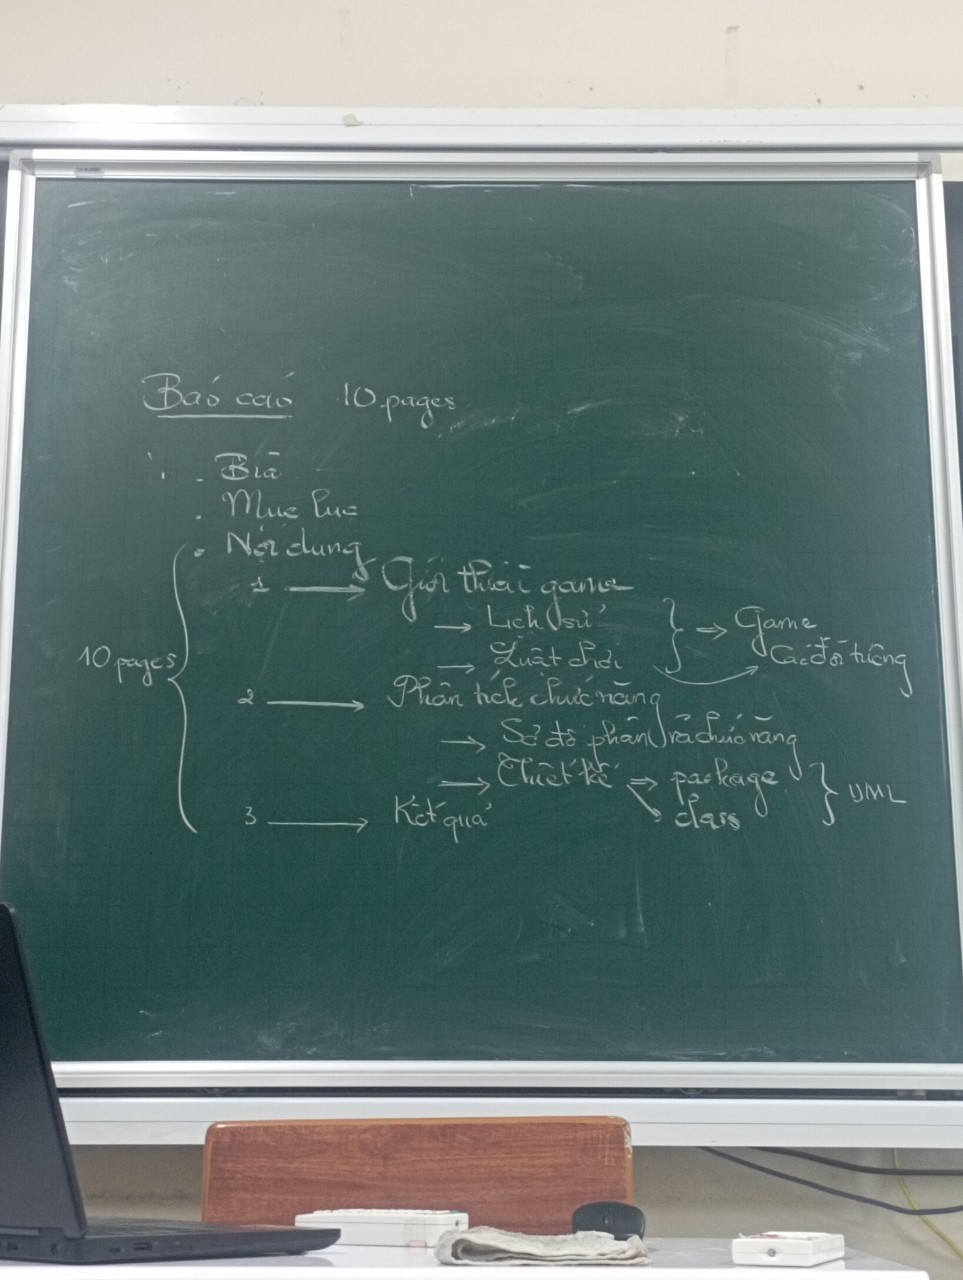 Báo cáo 10 pages
. Bìa
. Mục lục
. Nội dung
1 → Giới thiệu game
→ Lịch sử
→ Luật chơi
} ⇒ Game
Các đối tượng
10 pages {
2 → Phân tích chức năng
→ Sơ đồ phân rã chức năng
→ Thiết kế ⇒ package
class
} UML
3 → Kết quả